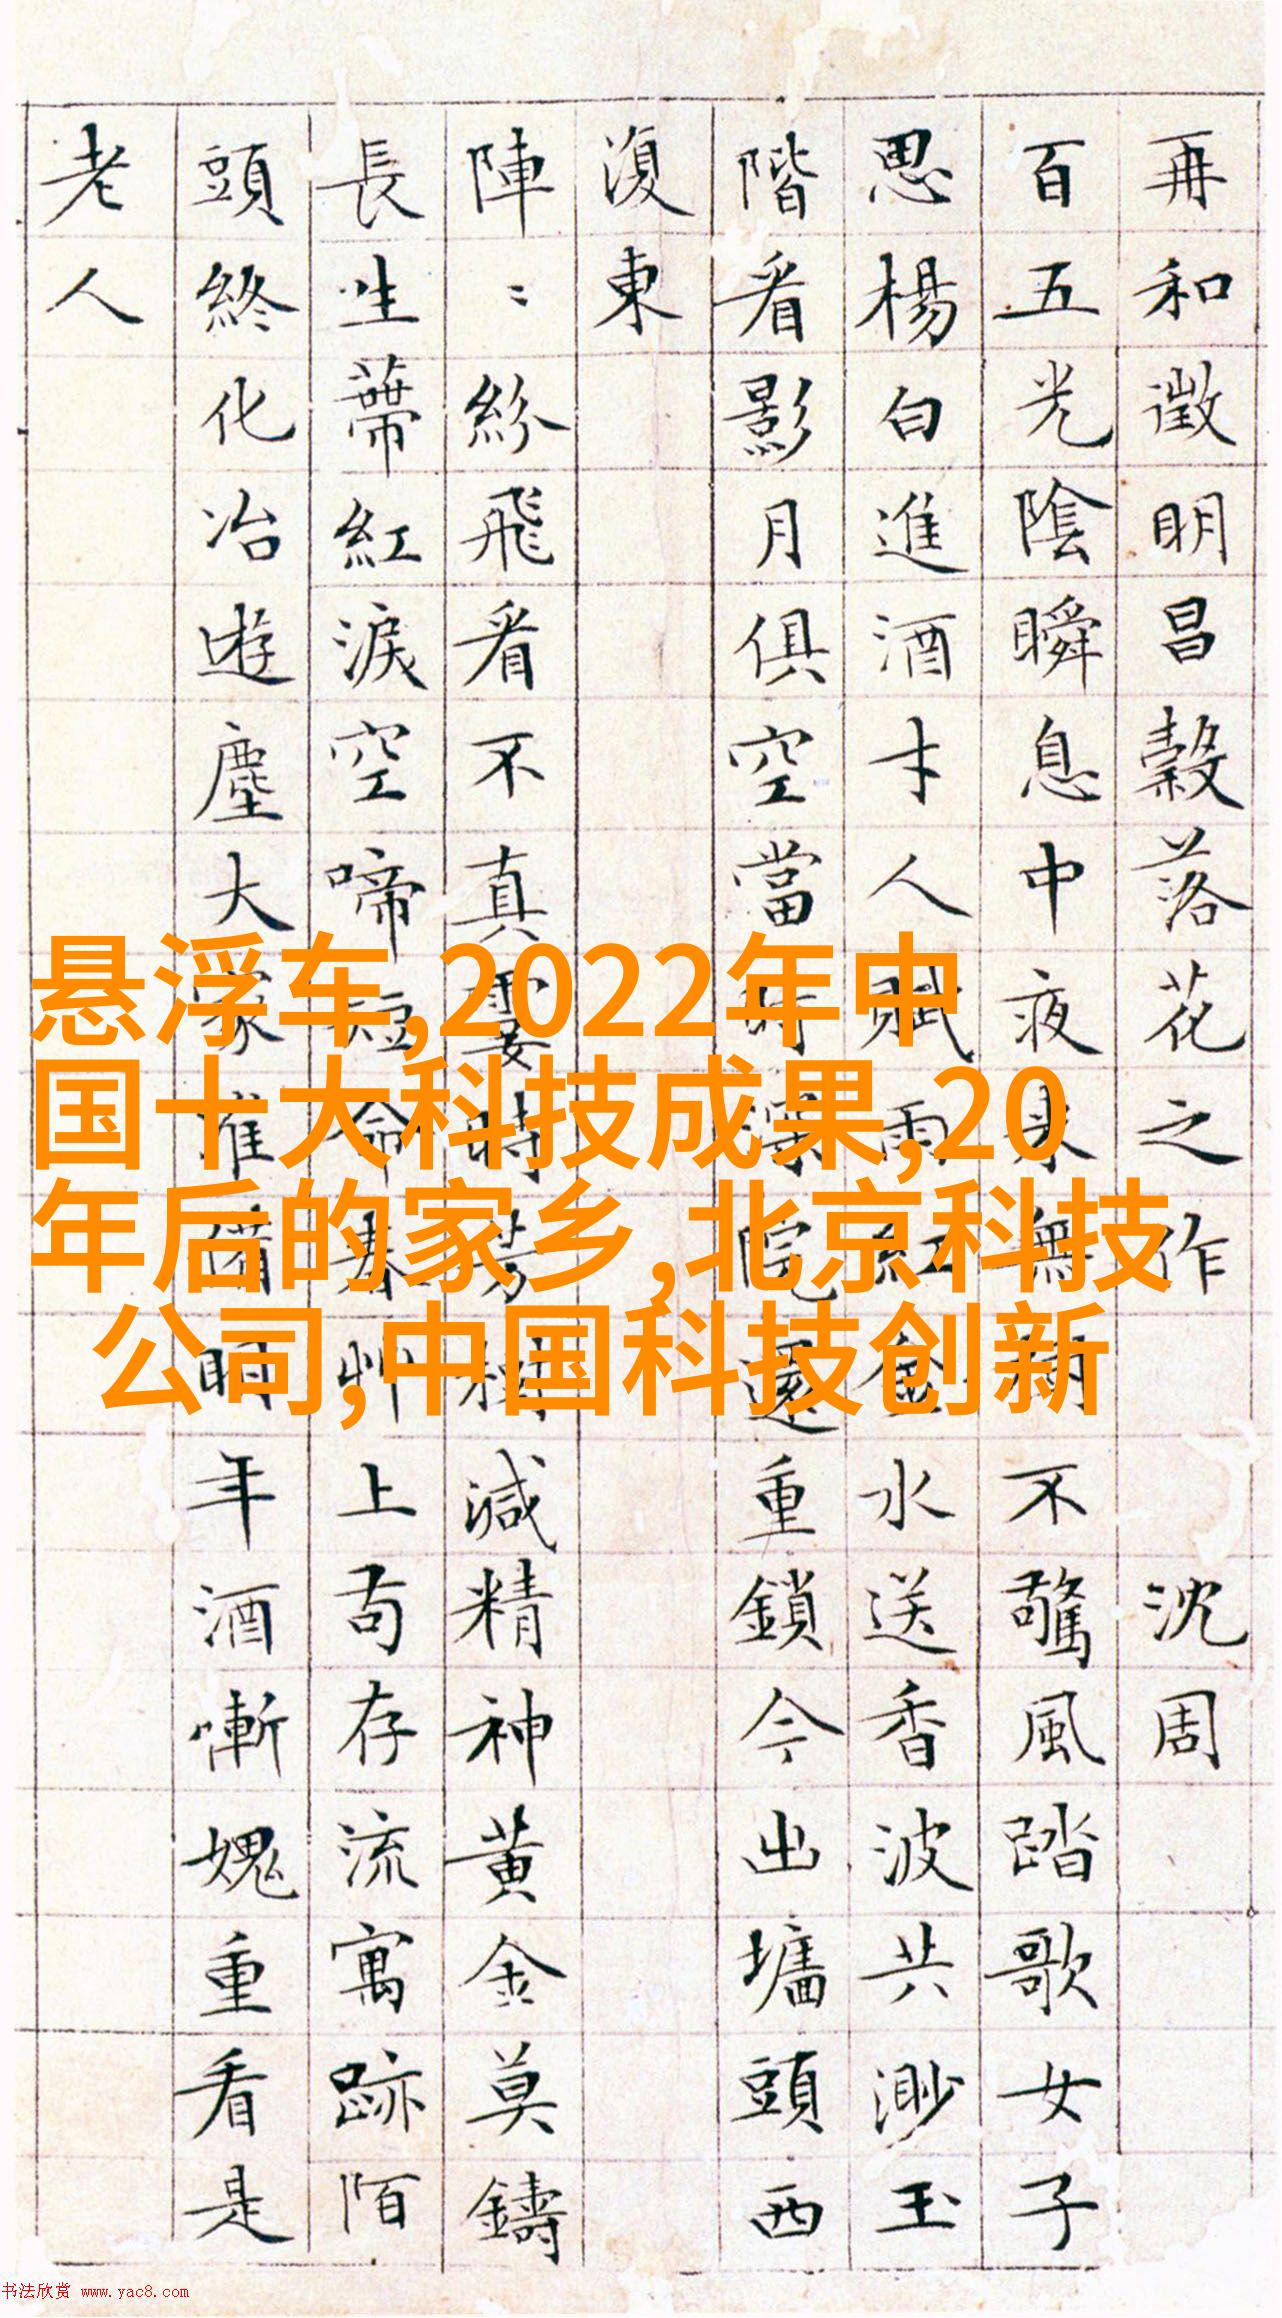 再和徵明昌穀落花之作 沈周
百五光陰瞬息中夜來無樹不驚風踏歌女子
思楊白進酒才人賦雨紅金水送香波共渺玉
階看影月俱空當時深院還重鎖今出墻頭西
復東
陣〻紛飛看不真霎時芳樹減精神黃金莫鑄
長生蒂紅淚空啼短命春艸上苟存流寓跡陌
頭終化冶遊塵大家準備明年酒慚媿重看是
老人
悬浮车,2022年中
国十大科技成果,20
年后的家乡,北京科技
公司,中国科技创新
书法欣赏 www.yac8.com